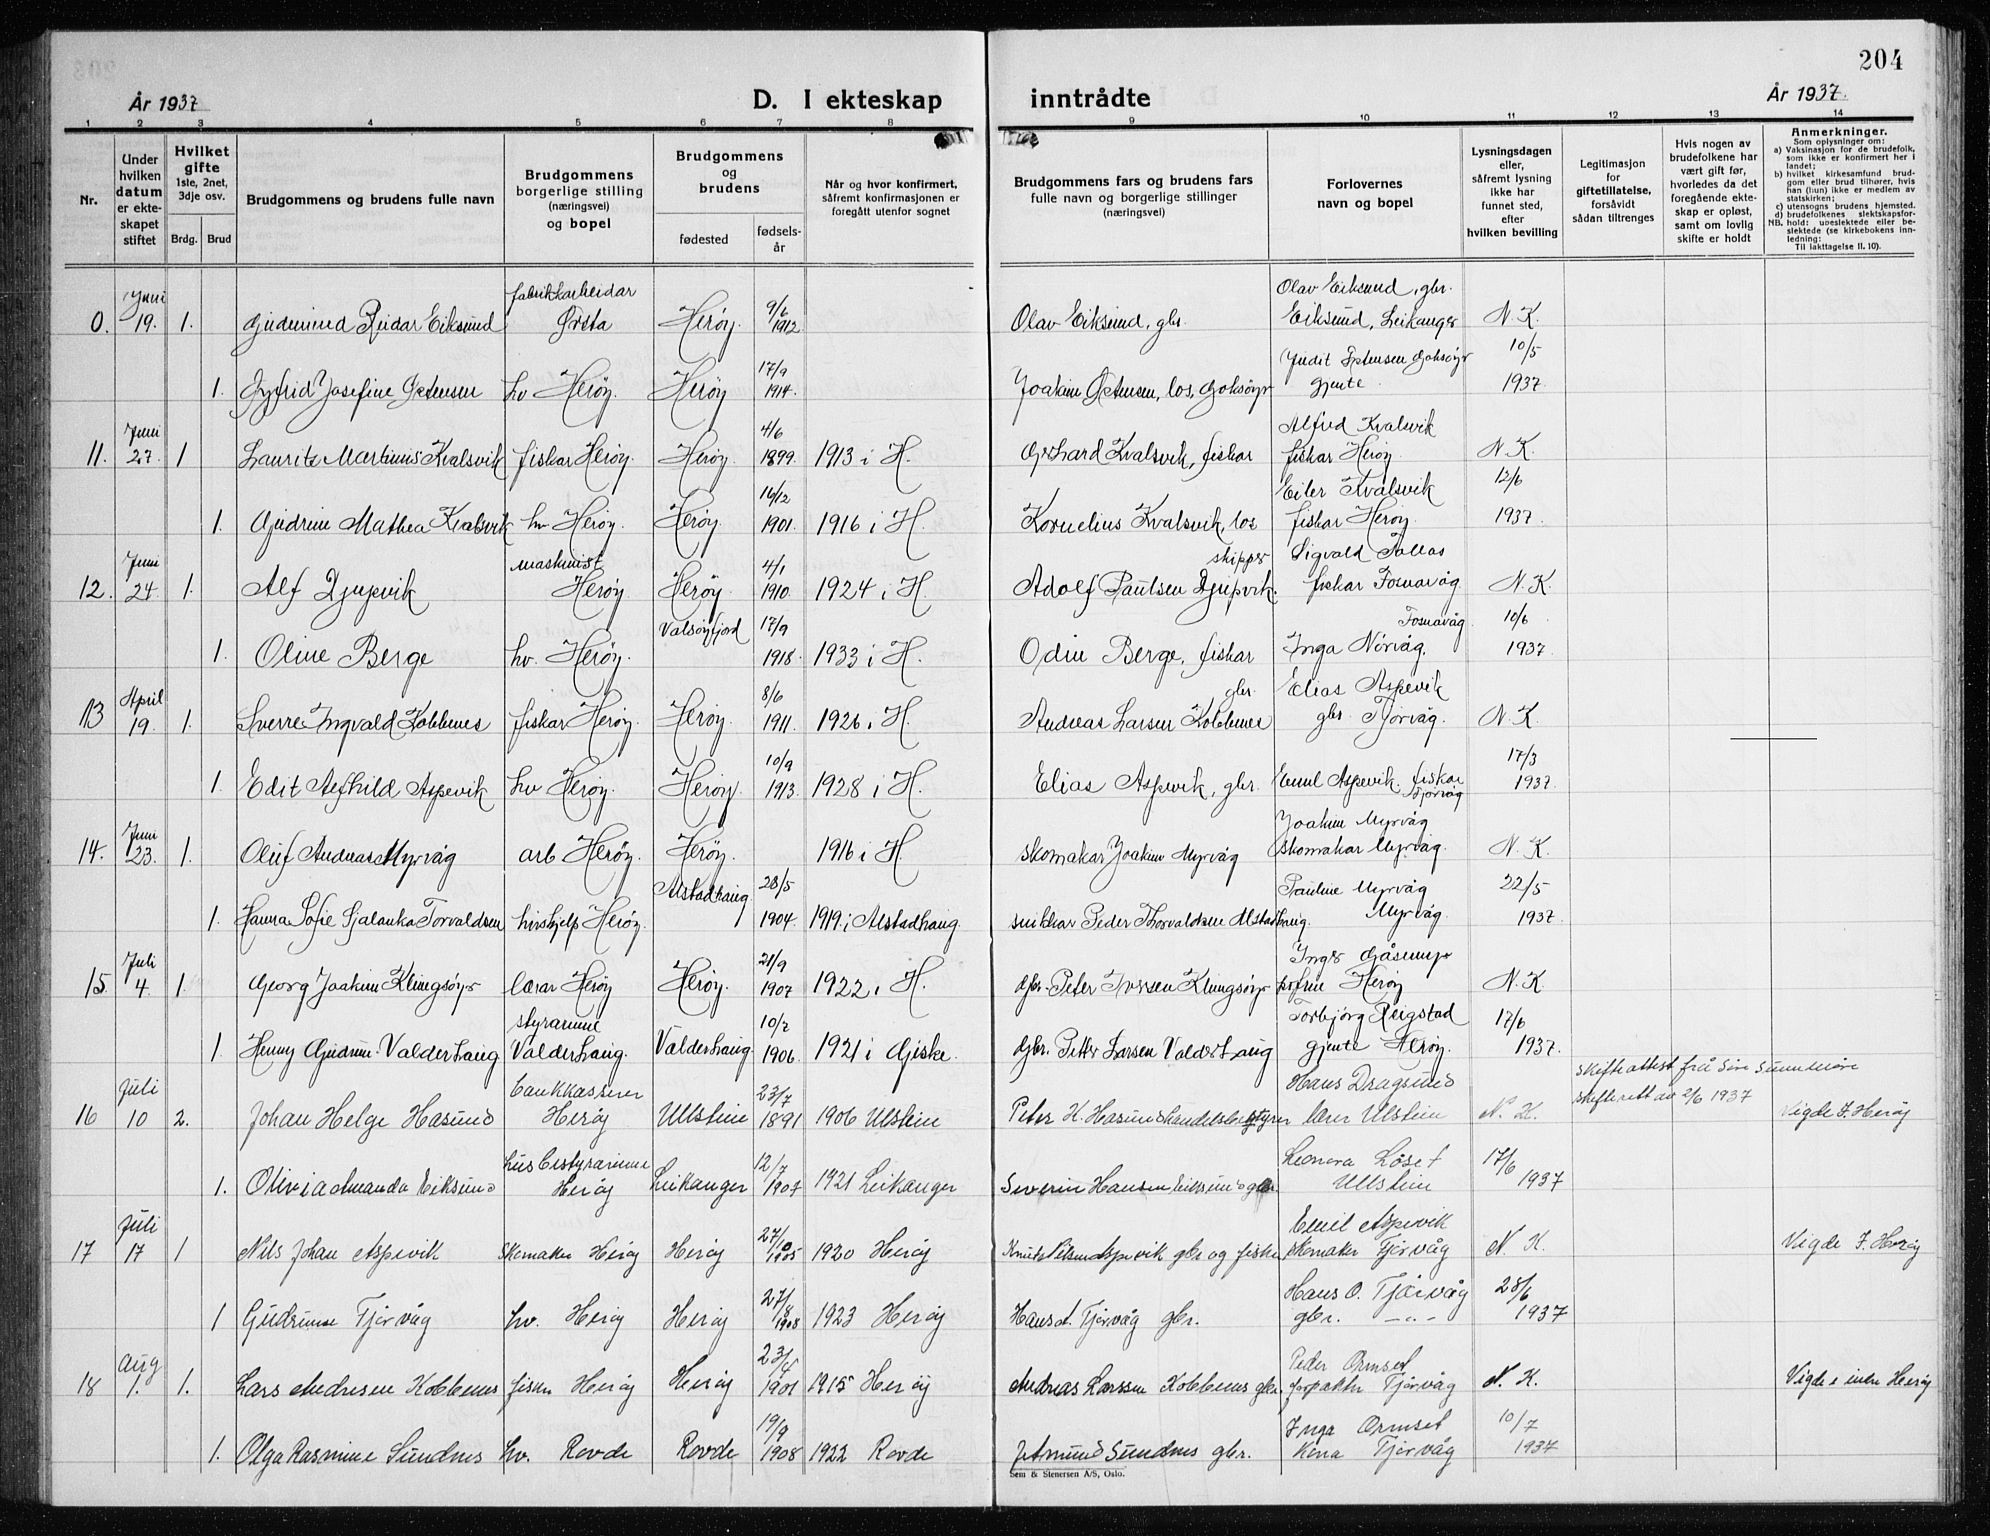 204
År 1937
D. I ekteskap inntrådte
År 1937.
1 2 3 4 5 6 7 8 9 10 11 12 13 14
Nr.
Under hvilken datum er ekteskapet stiftet
Hvilket gifte 1ste, 2net, 3dje osv.
Brdg. Brud
Brudgommens og brudens fulle navn
Brudgommens borgerlige stilling (næringsvei) og bopel
Brudgommens og brudens
fødested
fødselsår
Når og hvor konfirmert, såfremt konfirmasjonen er foregått utenfor sognet
Brudgommens fars og brudens fars fulle navn og borgerlige stillinger (næringsvei)
Forlovernes navn og bopel
Lysningsdagen eller, såfremt lysning ikke har funnet sted, efter hvilken bevilling
Legitimasjon for giftetillatelse, forsåvidt sådan tiltrenges
Hvis nogen av brudefolkene har vært gift før, hvorledes da det foregående ekteskap er opløst, samt om lovlig skifte er holdt
Anmerkninger.
Som oplysninger om:
a) Vaksinasjon for de brudefolk, som ikke er konfirmert her i landet;
b) hvilket kirkesamfund brudgom eller brud tilhører, hvis han (hun) ikke er medlem av statskirken;
c) utensogns brudens hjemsted.
d) brudefolkenes slektskapsforhold: ubeslektede eller beslektede (se kirkebokens innledning:
NB. Til iakttagelse II. 10).
0. Juni 19. 1. Gudmund Reidar Eiksund fabrikkarbeidar Ørsta Herøy. 9/6 1912 Olav Eiksund, gbr. Olav Eiksund, gbr. Eiksund, Leikanger N. K.
1. Josefine hv Herøy. Herøy 17/9 1914. Joakim los, Goksøyr Goksøyr gjente. 10/5 1937.
11. Juni 27. 1 Laurits Martinus Kvalsvik fiskar Herøy. Herøy 4/6 1899. 1913 i H. Gerhard Kvalsvik, fiskar Alfred Kvalsvik fiskar Herøy. N. K.
1. Gudrun Mathea Kvalsvik hv Herøy. Herøy. 16/12 1901. 1916 i H. Kornelius Kvalsvik, los Eiler Kvalsvik fiskar Herøy. 12/6 1937.
12. Juni 24. 1. Alf Djupvik maskinist Herøy. Herøy. 4/1 1910. 1924 i H. Adolf Paulsen Djupvik. skipper Sigvald fiskar Fosnavåg. N. K.
1. Oline Berge hv. Herøy. Valsøyfjord 17/9 1918. 1933 i H. Odin Berge, fiskar Inga Nørvåg. Fosnavåg 10/6 1937.
13 April 19. 1. Sverre Ingvald Kobbenes fiskar Herøy Herøy. 8/6 1911. 1926 i H. Andreas Larsen Kobbenes gbr. Elias Aspevik gbr. Tjørvåg. N. K.
1. Edit Alfhild Aspevik hv Herøy. Herøy. 10/9 1913. 1928 i H. Elias Aspevik, gbr. Emil Aspevik fiskar Tjørvåg 17/3 1937.
14. Juni 23. 1. Oluf Andreas Myrvåg arb Herøy. Herøy. 1916 i H skomakar Joakim Myrvåg Joakim Myrvåg skomakar Myrvåg. N. K.
1. Hanna Sofie Torvaldsen hushjelp Herøy. Alstadhaug 28/5 1904. 1919 i Alstadhaug. snikkar Peder Thorvaldsen Alstadhaug. Pauline Myrvåg Myrvåg. 22/5 1937.
15. Juli 4. 1. Georg Joakim Klungsøyr lærar Herøy Herøy. 21/9 1907 1922 i H. gbr. Peter Iversen Klungsøyr Inger frue Herøy N. K.
1. Henny Gudrun Valderhaug styrarinne Valderhaug. Valderhaug. 10/2 1906. 1921 i Giske. gbr. Petter Larsen Valderhaug Torbjørg Reigstad gjente Herøy. 17/6 1937.
16 Juli 10 2. Johan Helge Hasund bankkasserer Herøy Ullstein 23/7 1891 1906 Ulstein Peter K. Hasund handelsbestyrer Hans Dragsund lærer Ulstein N. K. skifteattest frå Søre Sunnmøre skifterett av 2/6 1937 Vigde i I. Herøy
1. Olivia Amanda Eiksund husbestyrarinne Herøy Leikanger 12/7 1907 1921 Leikanger Severin Hansen Eiksund gbr. Leonora Løset Ullstein 17/6 1937
17 Juli 17 1 Nils Johan Aspevik Skomaker Herøy Herøy 1905 1920 Herøy Knut Nilsen Aspevik gbr og fisker Emil Aspevik skomaker Tjørvåg N. K. Vigde I. Herøy
1 Gudrun Tjørvåg hv. Herøy Herøy 27/8 1908 1923 Herøy Hans A. Tjørvåg gbr. Hans O. Tjørvåg gbr. -„- 28/6 1937
18 Aug 1. 1. Lars Andresen Kobbenes fisker Herøy Herøy 23/4 1901 1915 Herøy Andreas Larssen Kobbenes gbr. Peder Ormset forpakter Tjørvåg N. K. Vigde i indre Herøy
1. Olga Rasmine Sundnes hv. Rovde Rovde 19/9 1908 1922 Rovde Amund Sundnes gbr. Inga Ormset kona Tjørvåg 10/7 1937
Sem & Stenersen A/S, Oslo.